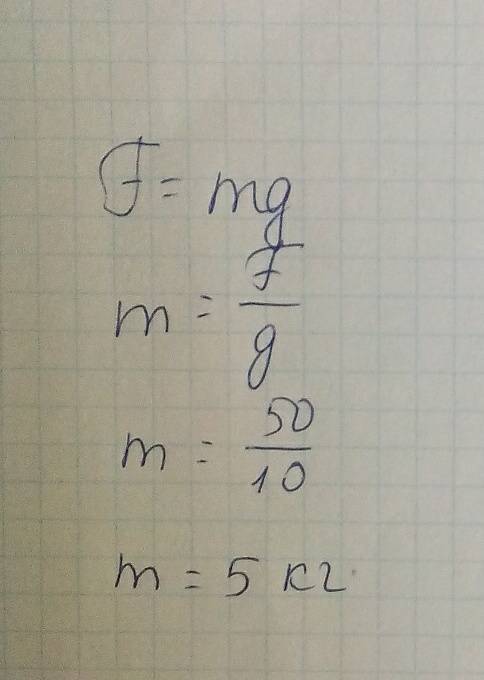 F = mg
m = F/g
m = 50/10
m = 5 кг.